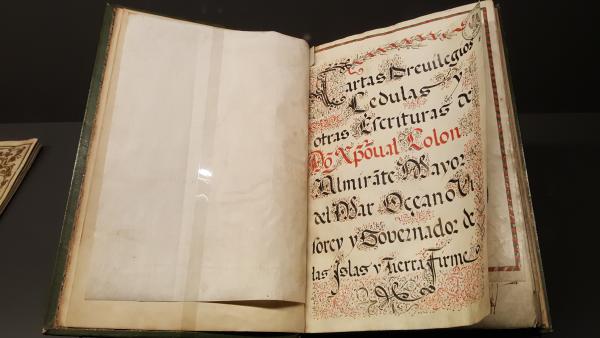 Cartas Preuilegios
Cedulas y
otras Escrituras de
Dõ Xpõual Colon
Almirãte Mayor
del Mar Oçeano Vi
ſorey y Gobernador de
las Islas y Tierra Firme